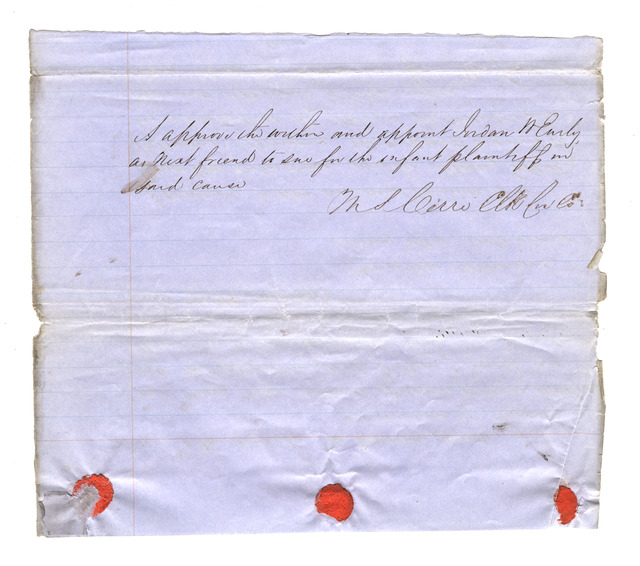 I approve the within and appoint Jordan W Early
as Next friend to sue for the infant plaintiff in
said cause
M S Cerre Clk Cir Co